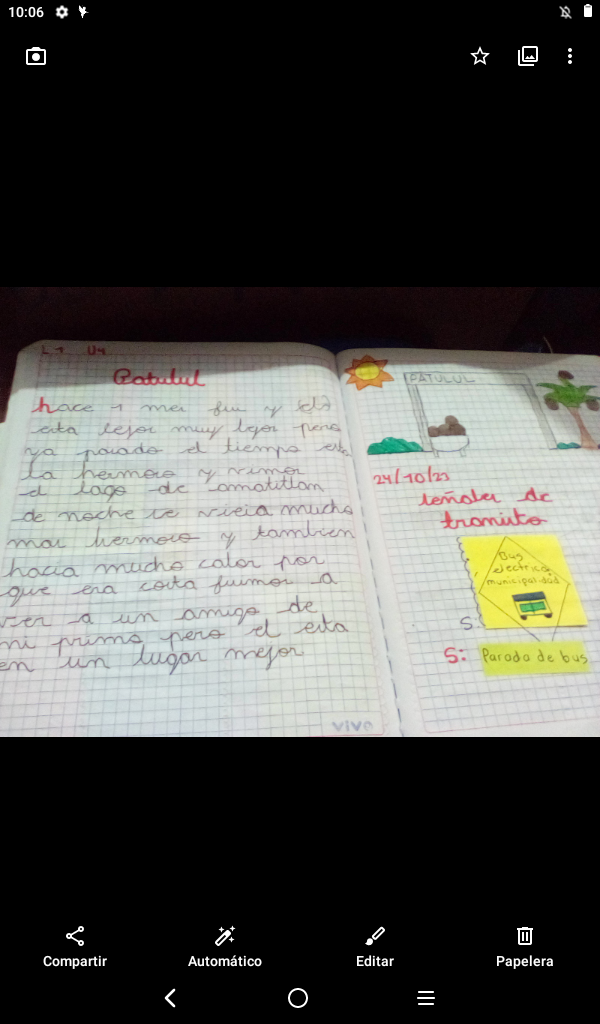 10:06
L 1 U4
Patulul
hace 1 mes fui y
esta lejos muy lejos pero
ya pasado el tiempo esta
la hermoso y vimos
el lago de amatitlan
de noche se vieia mucho
mas hermoso y tambien
hacia mucho calor por
que era costa fuimos a
ver a un amigo de
mi primo pero el esta
en un lugar mejor
vivo
PATULUL
24/10/23
señales de
transito
Bus
electrico
municipalidad
S:
S: Parada de bus
Compartir
Automático
Editar
Papelera